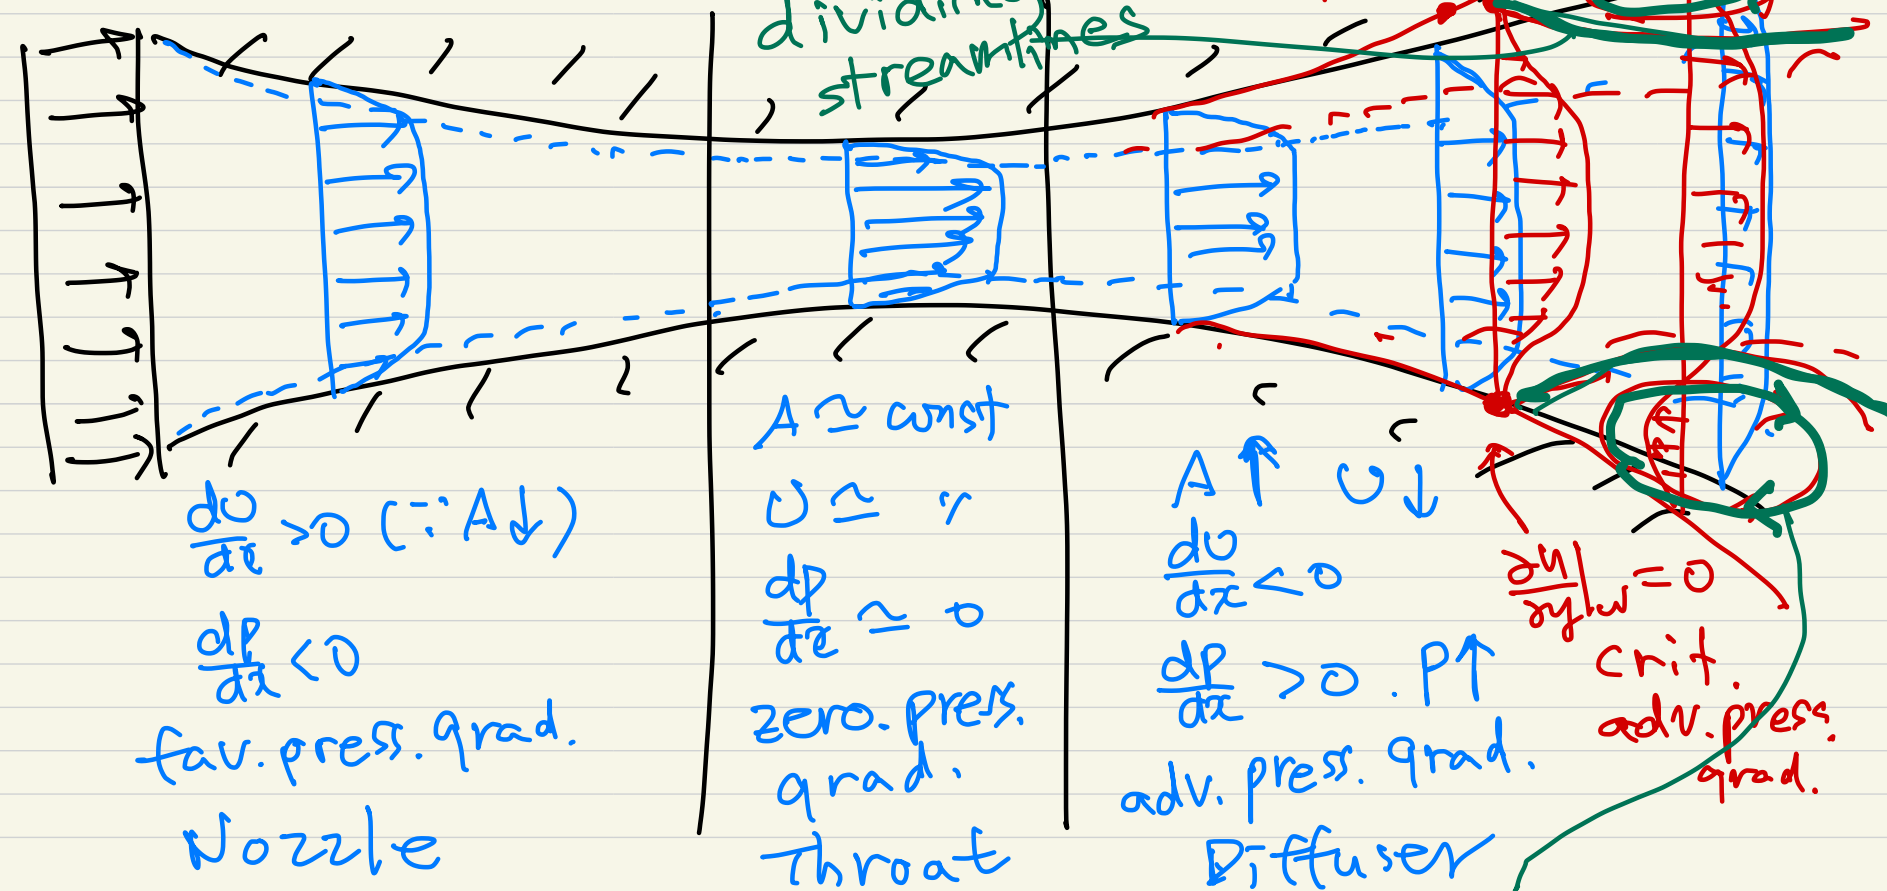 dividing
streamlines
dU/dx >0 (∵ A↓)
dp/dx <0
fav. press. grad.
Nozzle
A ≃ const
U ≃ 〃
dp/dx ≃ 0
zero. press.
grad.
Throat
A↑ U↓
dU/dx <0
dp/dx >0. P↑
adv. press. grad.
Diffuser
∂u/∂y|w = 0
crit.
adv. press.
grad.